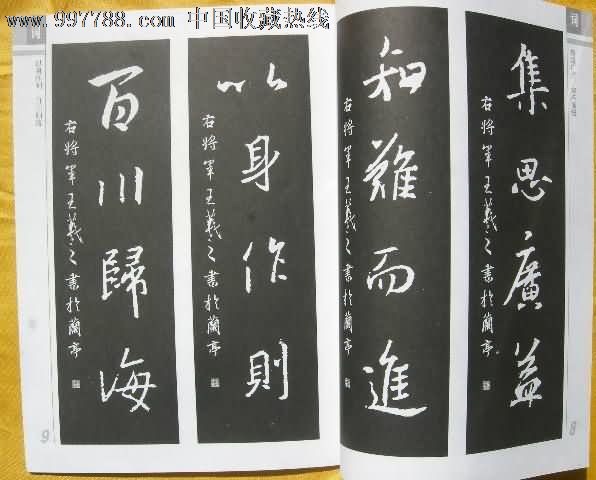 www.997788.com 中国收藏热线
集思廣益
右将軍王羲之書於蘭亭
知難而進
右将軍王羲之書於蘭亭
以身作則
右将軍王羲之書於蘭亭
百川歸海
右将軍王羲之書於蘭亭
词
词
8
9